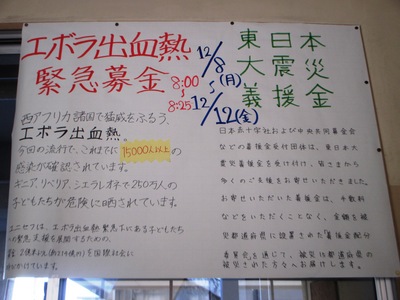 エボラ出血熱
緊急募金
8:00
〜
8:25
12/8(月)
〜
12/12(金)
西アフリカ諸国で猛威をふるう、
エボラ出血熱。
今回の流行で、これまでに15000人以上の
感染が確認されています。
ギニア、リベリア、シエラレオネで250万人の
子どもたちが危険に晒されています。
ユニセフは、エボラ出血熱緊急下にある子どもたち
への緊急支援を展開するための、
を国際社会に
呼びかけています。
東日本
大震災
義援金
日本赤十字社および中央共同募金会
などの義援金受付団体は、東日本大
震災義援金を受け付け、皆さまから
多くのご支援をお寄せいただきました。
お寄せいただいた義援金は、手数料
などをいただくことなく、全額を被
災都道府県に設置された「義援金配分
委員会」を通じて、被災15都道県の
被災された方々へお届けします。